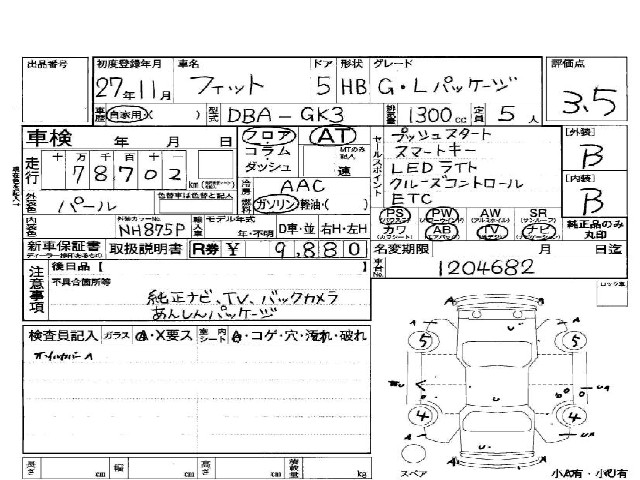 出品番号 初度登録年月 車名 ドア 形状 グレード 評価点
27年11月 フィット 5 HB G・Lパッケージ 3.5
車歴 自家用・( ) 型式 DBA-GK3 排気量 1300cc 定員 5人
車検 年 月 日 フロア AT
コラム MTのみ記入
ダッシュ 速
セールスポイント プッシュスタート
スマートキー
LEDライト
クルーズコントロール
ETC
[外装] B
[内装] B
走行 十万千百十一
78702 km
冷房 AAC
外装色 パール 色替車は色替と記入
燃料 ガソリン・軽油・( )
PS PW AW SR
カワ AB TV ナビ
純正品のみ丸印
内装色 外装カラーNo. NH875P 輸入車 モデル年式 年・不明 D車・並 右H・左H
新車保証書 取扱説明書 R券 ¥ 9,880
名変期限 月 日迄
車台No. 1204682
注意事項 後日品【 】
不具合箇所等
純正ナビ、TV、バックカメラ
あんしんパッケージ
検査員記入 ガラス A・X要ス 室内 シート A・コゲ・穴・汚れ・破れ
スペア 小A有・小U有
長さ cm 幅 cm 高さ cm 積載量 kg